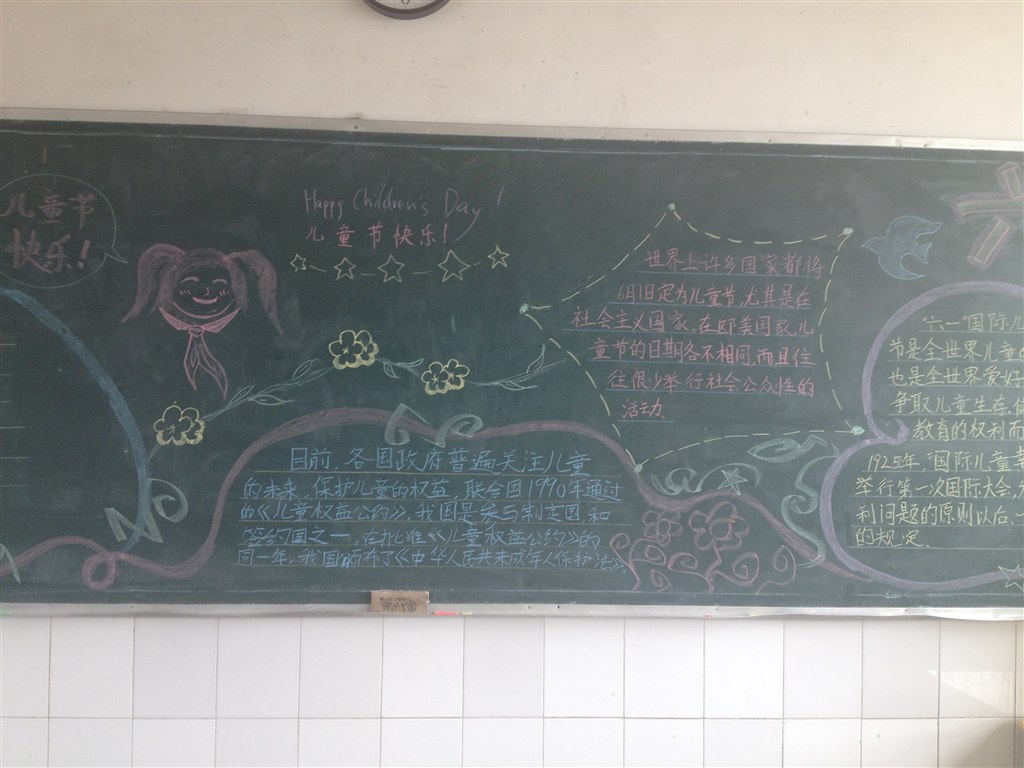 儿童节
快乐!
Happy Children's Day!
儿童节快乐!
世界上许多国家都将
6月1日定为儿童节,尤其是在
社会主义国家。在欧美国家,儿
童节的日期各不相同,而且往
往很少举行社会公众性的
活动
目前,各国政府普遍关注儿童
的未来,保护儿童的权益,联合国1990年通过
的《儿童权益公约》,我国是参与制定国,和
签约国之一,在批准《儿童权益公约》的
同一年,我国颁布了《中华人民共未成年人保护法》。
"六一"国际儿
节是全世界儿童的
也是全世界爱好
争取儿童生存,保
教育的权利而
1925年,"国际儿童幸
举行第一次国际大会,
利问题的原则以后,一
的规定。